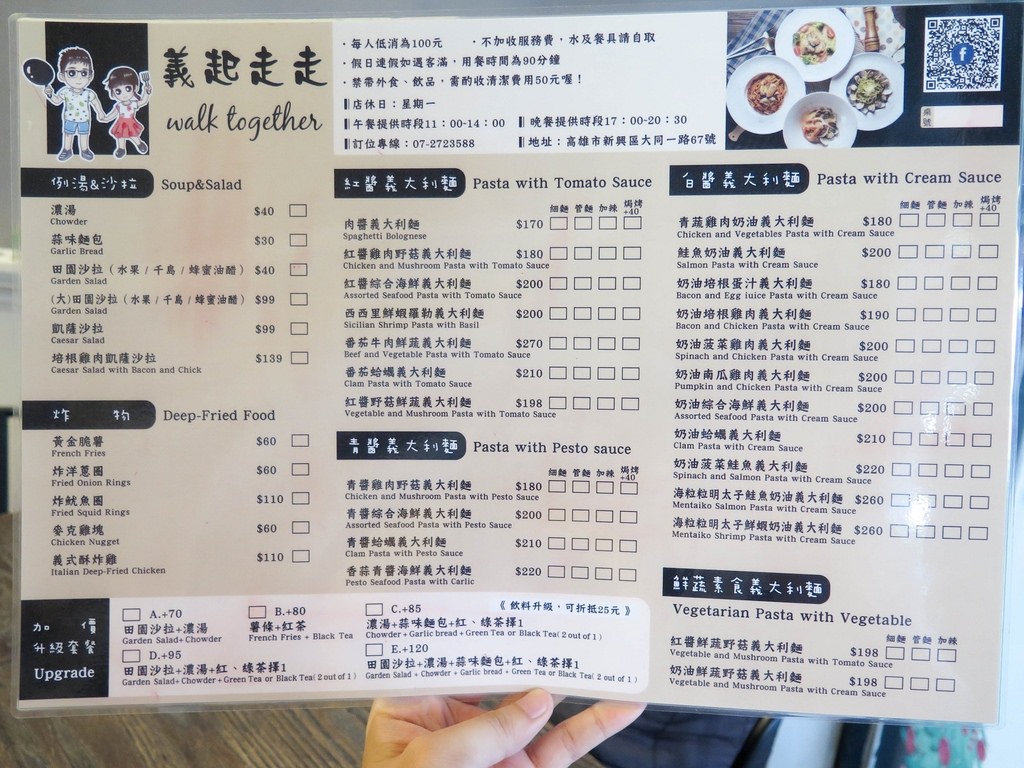 義起走走
walk together
·每人低消為100元 ·不加收服務費，水及餐具請自取
·假日連假如遇客滿，用餐時間為90分鐘
·禁帶外食、飲品，需酌收清潔費用50元喔！
店休日：星期一
午餐提供時段11：00-14：00 晚餐提供時段17：00-20：30
訂位專線：07-2723588 地址：高雄市新興區大同一路67號
桌號
例湯&沙拉 Soup&Salad
濃湯 $40
Chowder
蒜味麵包 $30
Garlic Bread
田園沙拉（水果/千島/蜂蜜油醋） $40
Garden Salad
(大)田園沙拉（水果/千島/蜂蜜油醋） $99
Garden Salad
凱薩沙拉 $99
Caesar Salad
培根雞肉凱薩沙拉 $139
Caesar Salad with Bacon and Chick
炸 物 Deep-Fried Food
黃金脆薯 $60
French Fries
炸洋蔥圈 $60
Fried Onion Rings
炸魷魚圈 $110
Fried Squid Rings
麥克雞塊 $60
Chicken Nugget
義式酥炸雞 $110
Italian Deep-Fried Chicken
紅醬義大利麵 Pasta with Tomato Sauce
細麵 管麵 加辣 焗烤+40
肉醬義大利麵 $170
Spaghetti Bolognese
紅醬雞肉野菇義大利麵 $180
Chicken and Mushroom Pasta with Tomato Sauce
紅醬綜合海鮮義大利麵 $200
Assorted Seafood Pasta with Tomato Sauce
西西里鮮蝦羅勒義大利麵 $200
Sicilian Shrimp Pasta with Basil
番茄牛肉鮮蔬義大利麵 $270
Beef and Vegetable Pasta with Tomato Sauce
番茄蛤蠣義大利麵 $210
Clam Pasta with Tomato Sauce
紅醬野菇鮮蔬義大利麵 $198
Vegetable and Mushroom Pasta with Tomato Sauce
青醬義大利麵 Pasta with Pesto sauce
細麵 管麵 加辣 焗烤+40
青醬雞肉野菇義大利麵 $180
Chicken and Mushroom Pasta with Pesto Sauce
青醬綜合海鮮義大利麵 $200
Assorted Seafood Pasta with Pesto Sauce
青醬蛤蠣義大利麵 $210
Clam Pasta with Pesto Sauce
香蒜青醬海鮮義大利麵 $220
Pesto Seafood Pasta with Garlic
白醬義大利麵 Pasta with Cream Sauce
細麵 管麵 加辣 焗烤+40
青蔬雞肉奶油義大利麵 $180
Chicken and Vegetables Pasta with Cream Sauce
鮭魚奶油義大利麵 $200
Salmon Pasta with Cream Sauce
奶油培根蛋汁義大利麵 $180
Bacon and Egg iuice Pasta with Cream Sauce
奶油培根雞肉義大利麵 $190
Bacon and Chicken Pasta with Cream Sauce
奶油菠菜雞肉義大利麵 $200
Spinach and Chicken Pasta with Cream Sauce
奶油南瓜雞肉義大利麵 $200
Pumpkin and Chicken Pasta with Cream Sauce
奶油綜合海鮮義大利麵 $200
Assorted Seafood Pasta with Cream Sauce
奶油蛤蠣義大利麵 $210
Clam Pasta with Cream Sauce
奶油菠菜鮭魚義大利麵 $220
Spinach and Salmon Pasta with Cream Sauce
海粒粒明太子鮭魚奶油義大利麵 $260
Mentaiko Salmon Pasta with Cream Sauce
海粒粒明太子鮮蝦奶油義大利麵 $260
Mentaiko Shrimp Pasta with Cream Sauce
鮮蔬素食義大利麵
Vegetarian Pasta with Vegetable
細麵 管麵 加辣
紅醬鮮蔬野菇義大利麵 $198
Vegetable and Mushroom Pasta with Tomato Sauce
奶油鮮蔬野菇義大利麵 $198
Vegetable and Mushroom Pasta with Cream Sauce
加 價
升級套餐
Upgrade
《飲料升級，可折抵25元》
A.+70
田園沙拉+濃湯
Garden Salad+ Chowder
B.+80
薯條+紅茶
French Fries + Black Tea
C.+85
濃湯+蒜味麵包+紅、綠茶擇1
Chowder+ Garlic bread + Green Tea or Black Tea( 2 out of 1 )
D.+95
田園沙拉+濃湯+紅、綠茶擇1
Garden Salad+ Chowder + Green Tea or Black Tea( 2 out of 1 )
E.+120
田園沙拉+濃湯+蒜味麵包+紅、綠茶擇1
Garden Salad + Chowder + Garlic bread + Green Tea or Black Tea( 2 out of 1 )